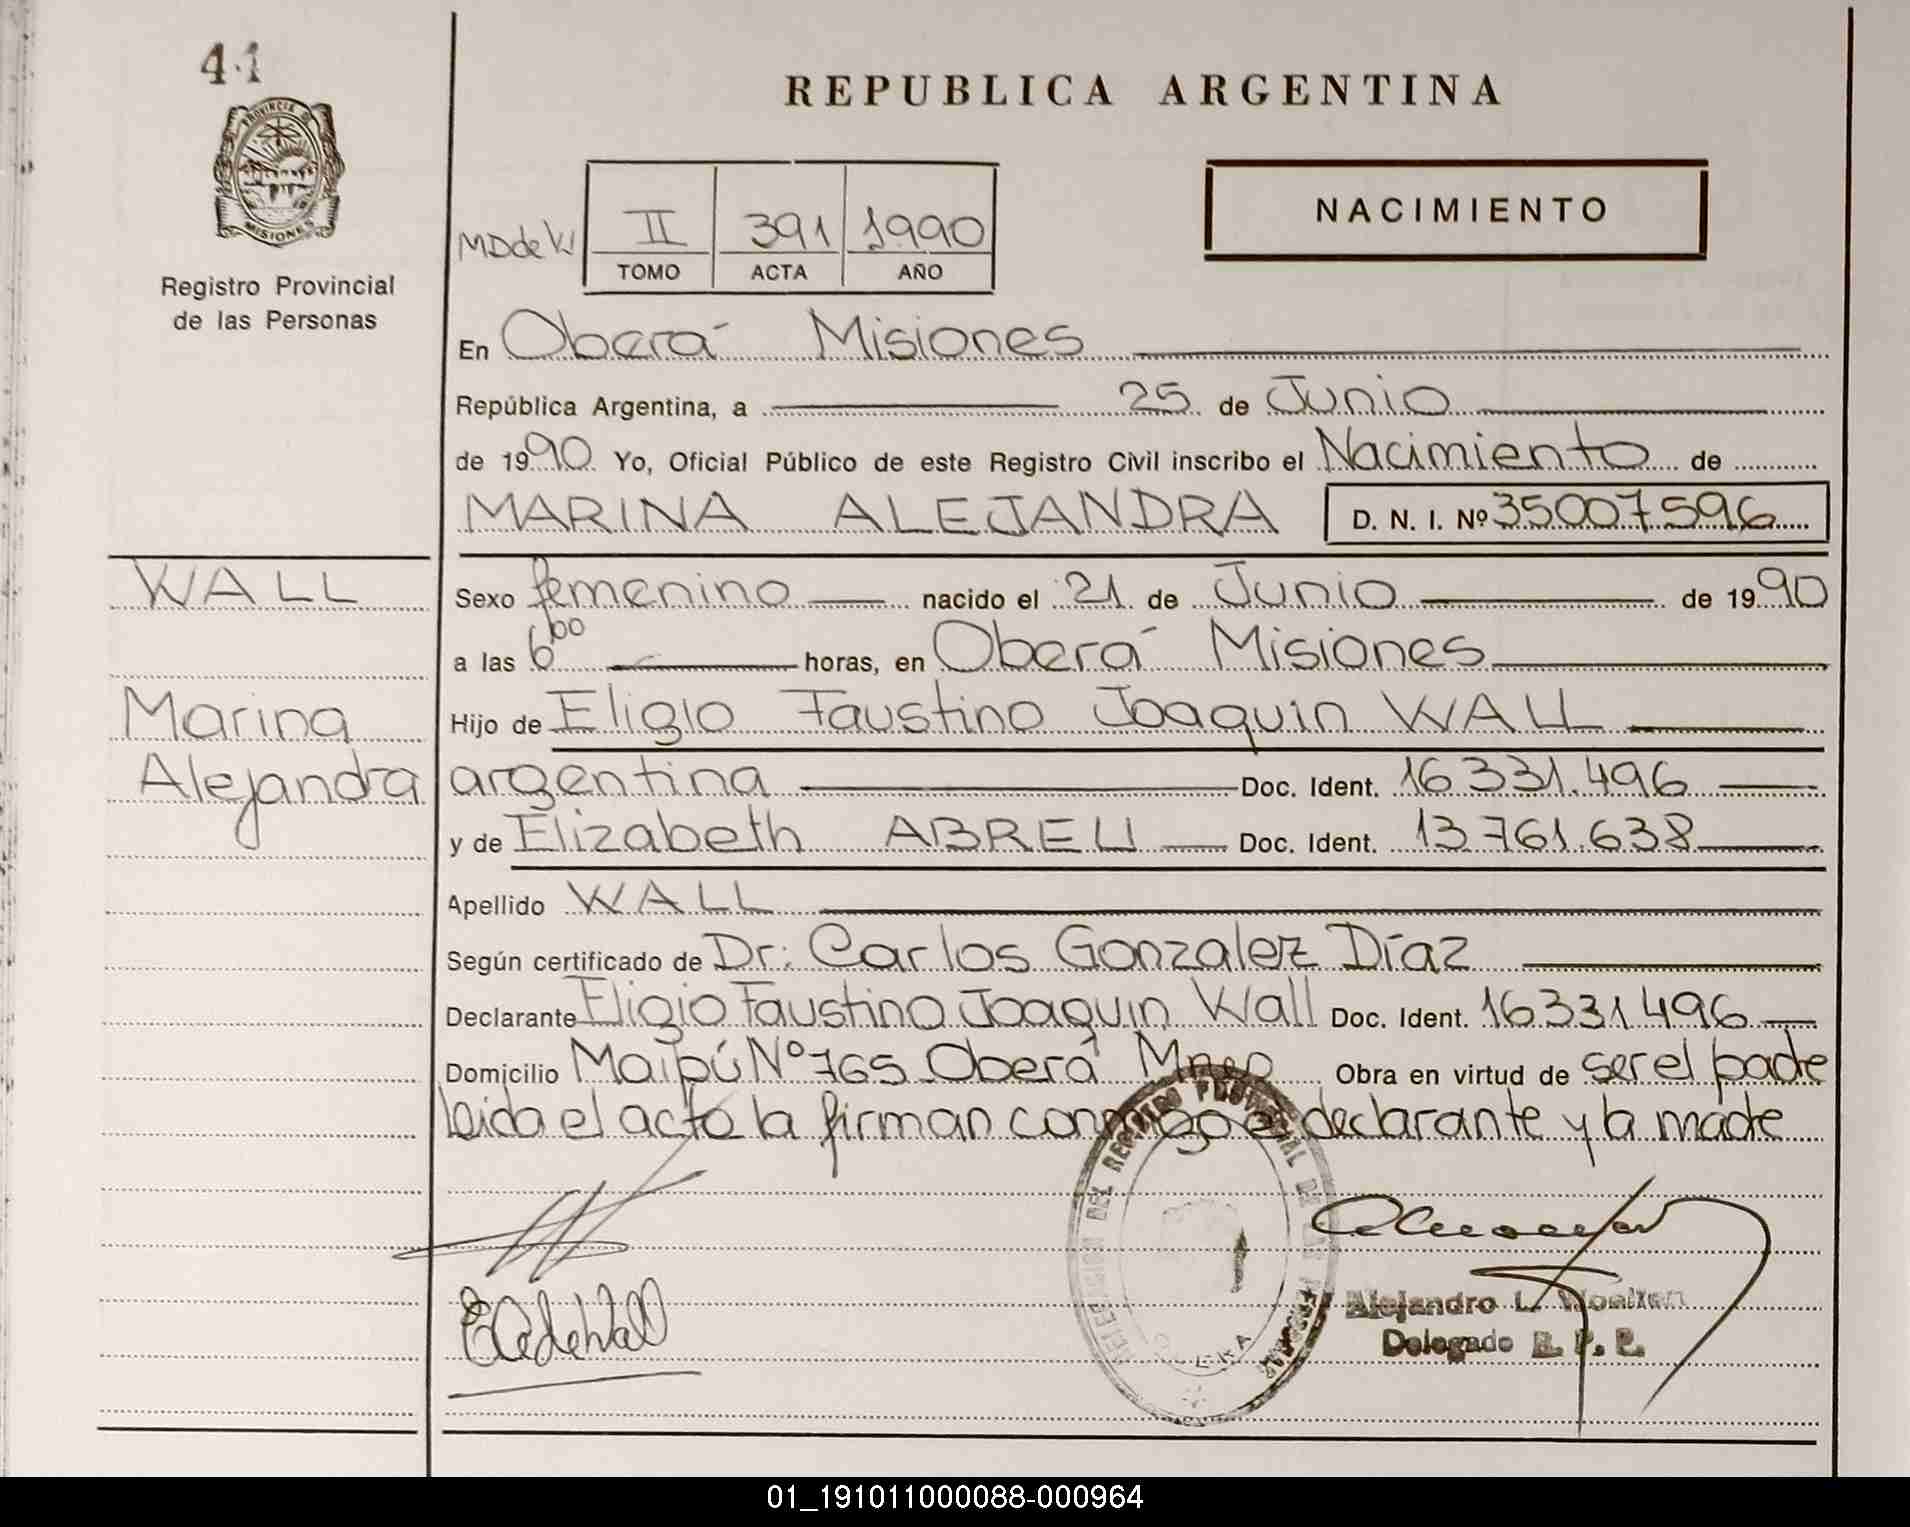 41
REPUBLICA ARGENTINA
PROVINCIA DE
MISIONES
Registro Provincial
de las Personas
MDdeW
II 391 1990
TOMO ACTA AÑO
NACIMIENTO
En Oberá Misiones
República Argentina, a 25 de Junio
de 1990 Yo, Oficial Público de este Registro Civil inscribo el Nacimiento de
MARINA ALEJANDRA D. N. I. Nº 35007596
WALL
Sexo femenino nacido el 21 de Junio de 1990
a las 6 00 horas, en Oberá Misiones
Marina
Hijo de Eligio Faustino Joaquin WALL
Alejandra
argentina Doc. Ident. 16 331.496
y de Elizabeth ABREU Doc. Ident. 13 761.638
Apellido WALL
Según certificado de Dr: Carlos Gonzalez Díaz
Declarante Eligio Faustino Joaquin Wall Doc. Ident. 16331496
Domicilio Maipú Nº 765 Oberá Mnes Obra en virtud de ser el padre
leida el acta la firman conmigo el declarante y la madre
DELEGACION DEL REGISTRO PROVINCIAL DE LAS PERSONAS
OBERA
EAdeWall
Alejandro L.
Delegado R. P. P.
01_191011000088-000964